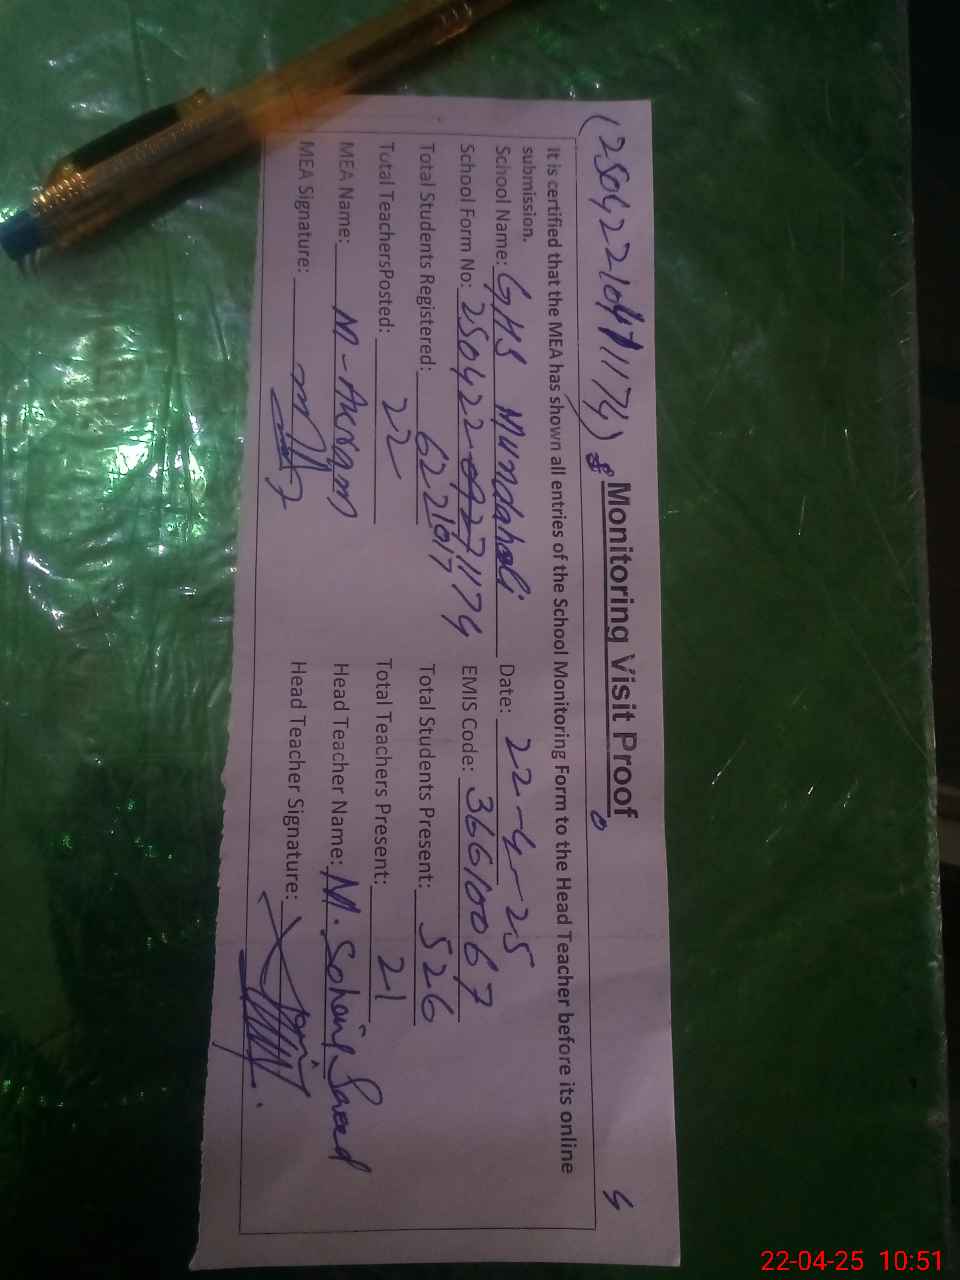 (25042210411174) Monitoring Visit Proof
It is certified that the MEA has shown all entries of the School Monitoring Form to the Head Teacher before its online
submission.
School Name: GHS Mundahali Date: 22-4-25
School Form No: 250422 1174 EMIS Code: 36610067
Total Students Registered: 622 Total Students Present: 526
Total TeachersPosted: 22 Total Teachers Present: 21
MEA Name: M-Akram Head Teacher Name: M. Sohail Saeed
MEA Signature: Head Teacher Signature:
22-04-25 10:51